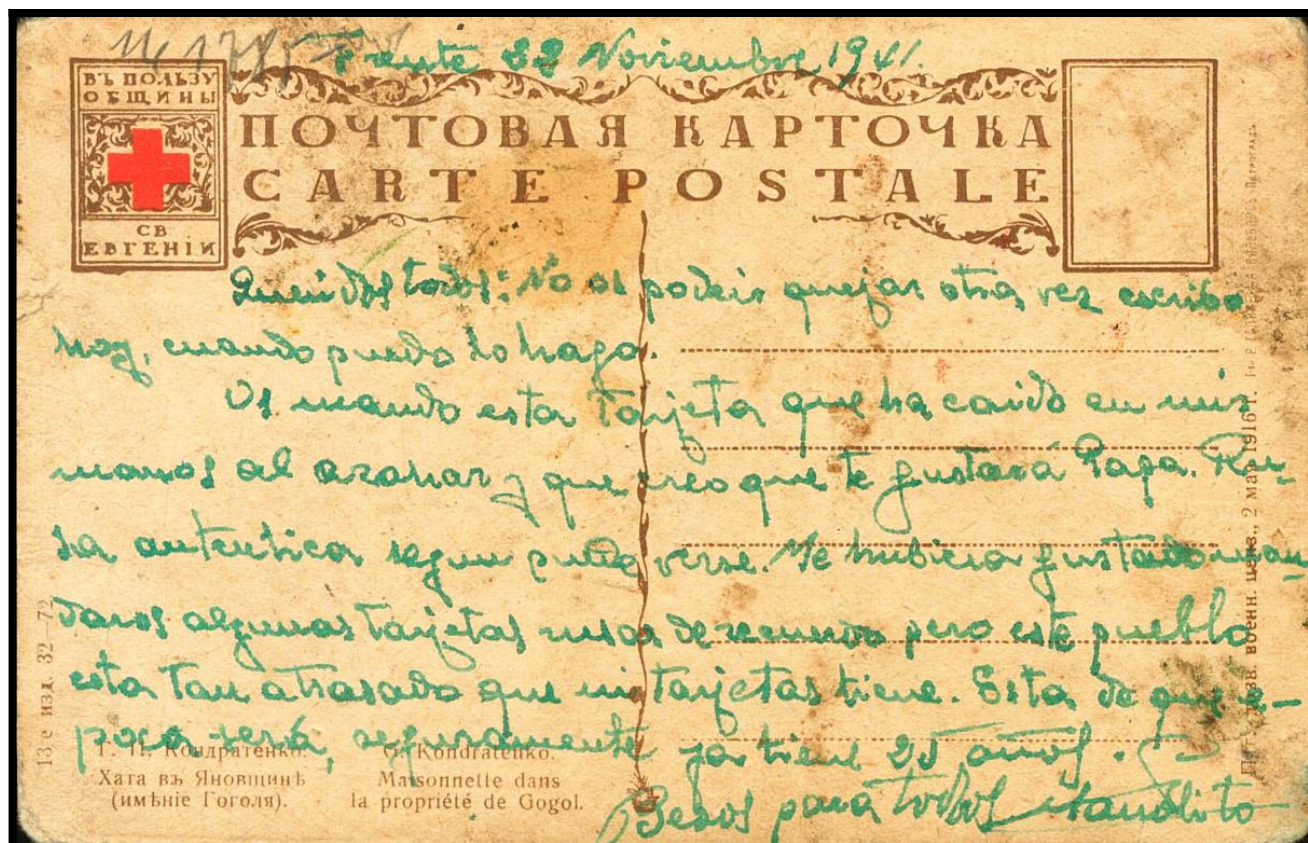 Frente 22 Noviembre 1941.
ВЪ ПОЛЬЗУ
ОБЩИНЫ
СВ
ЕВГЕНІИ
ПОЧТОВАЯ КАРТОЧКА
CARTE POSTALE
Queridos todos: No os podeis quejar otra vez escribo
hoy, cuando puedo lo hago.
Os mando esta Tarjeta que ha caido en mis
manos al azahar y que creo que te gustará Papá. Ru-
sa autentica segun puede verse. Me hubiera gustado man-
daros algunas tarjetas rusas de recuerdo pero este pueblo
esta tan atrasado que ni tarjetas tiene. Esta de que e-
poca será, seguramente ya tiene 25 años.
Besos para todos Manolito
Г. П. Кондратенко.
Хата въ Яновщинѣ
(имѣніе Гоголя).
G. Kondratenko.
Maisonnette dans
la propriété de Gogol.
13-е изд. 32—72
военн. ценз., 2 мар. 1916 г.